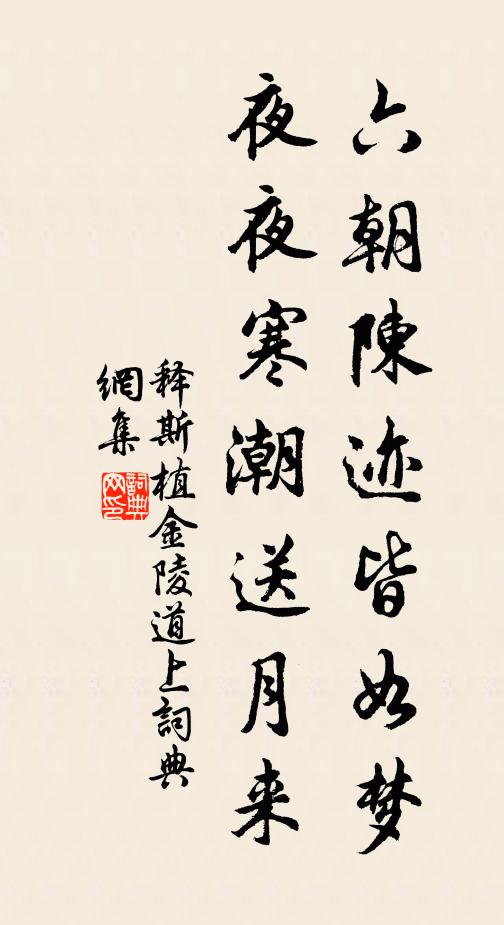 六朝陳迹皆如梦
夜夜寒潮送月来
释斯植金陵道上詞典
網集
詞典
网印